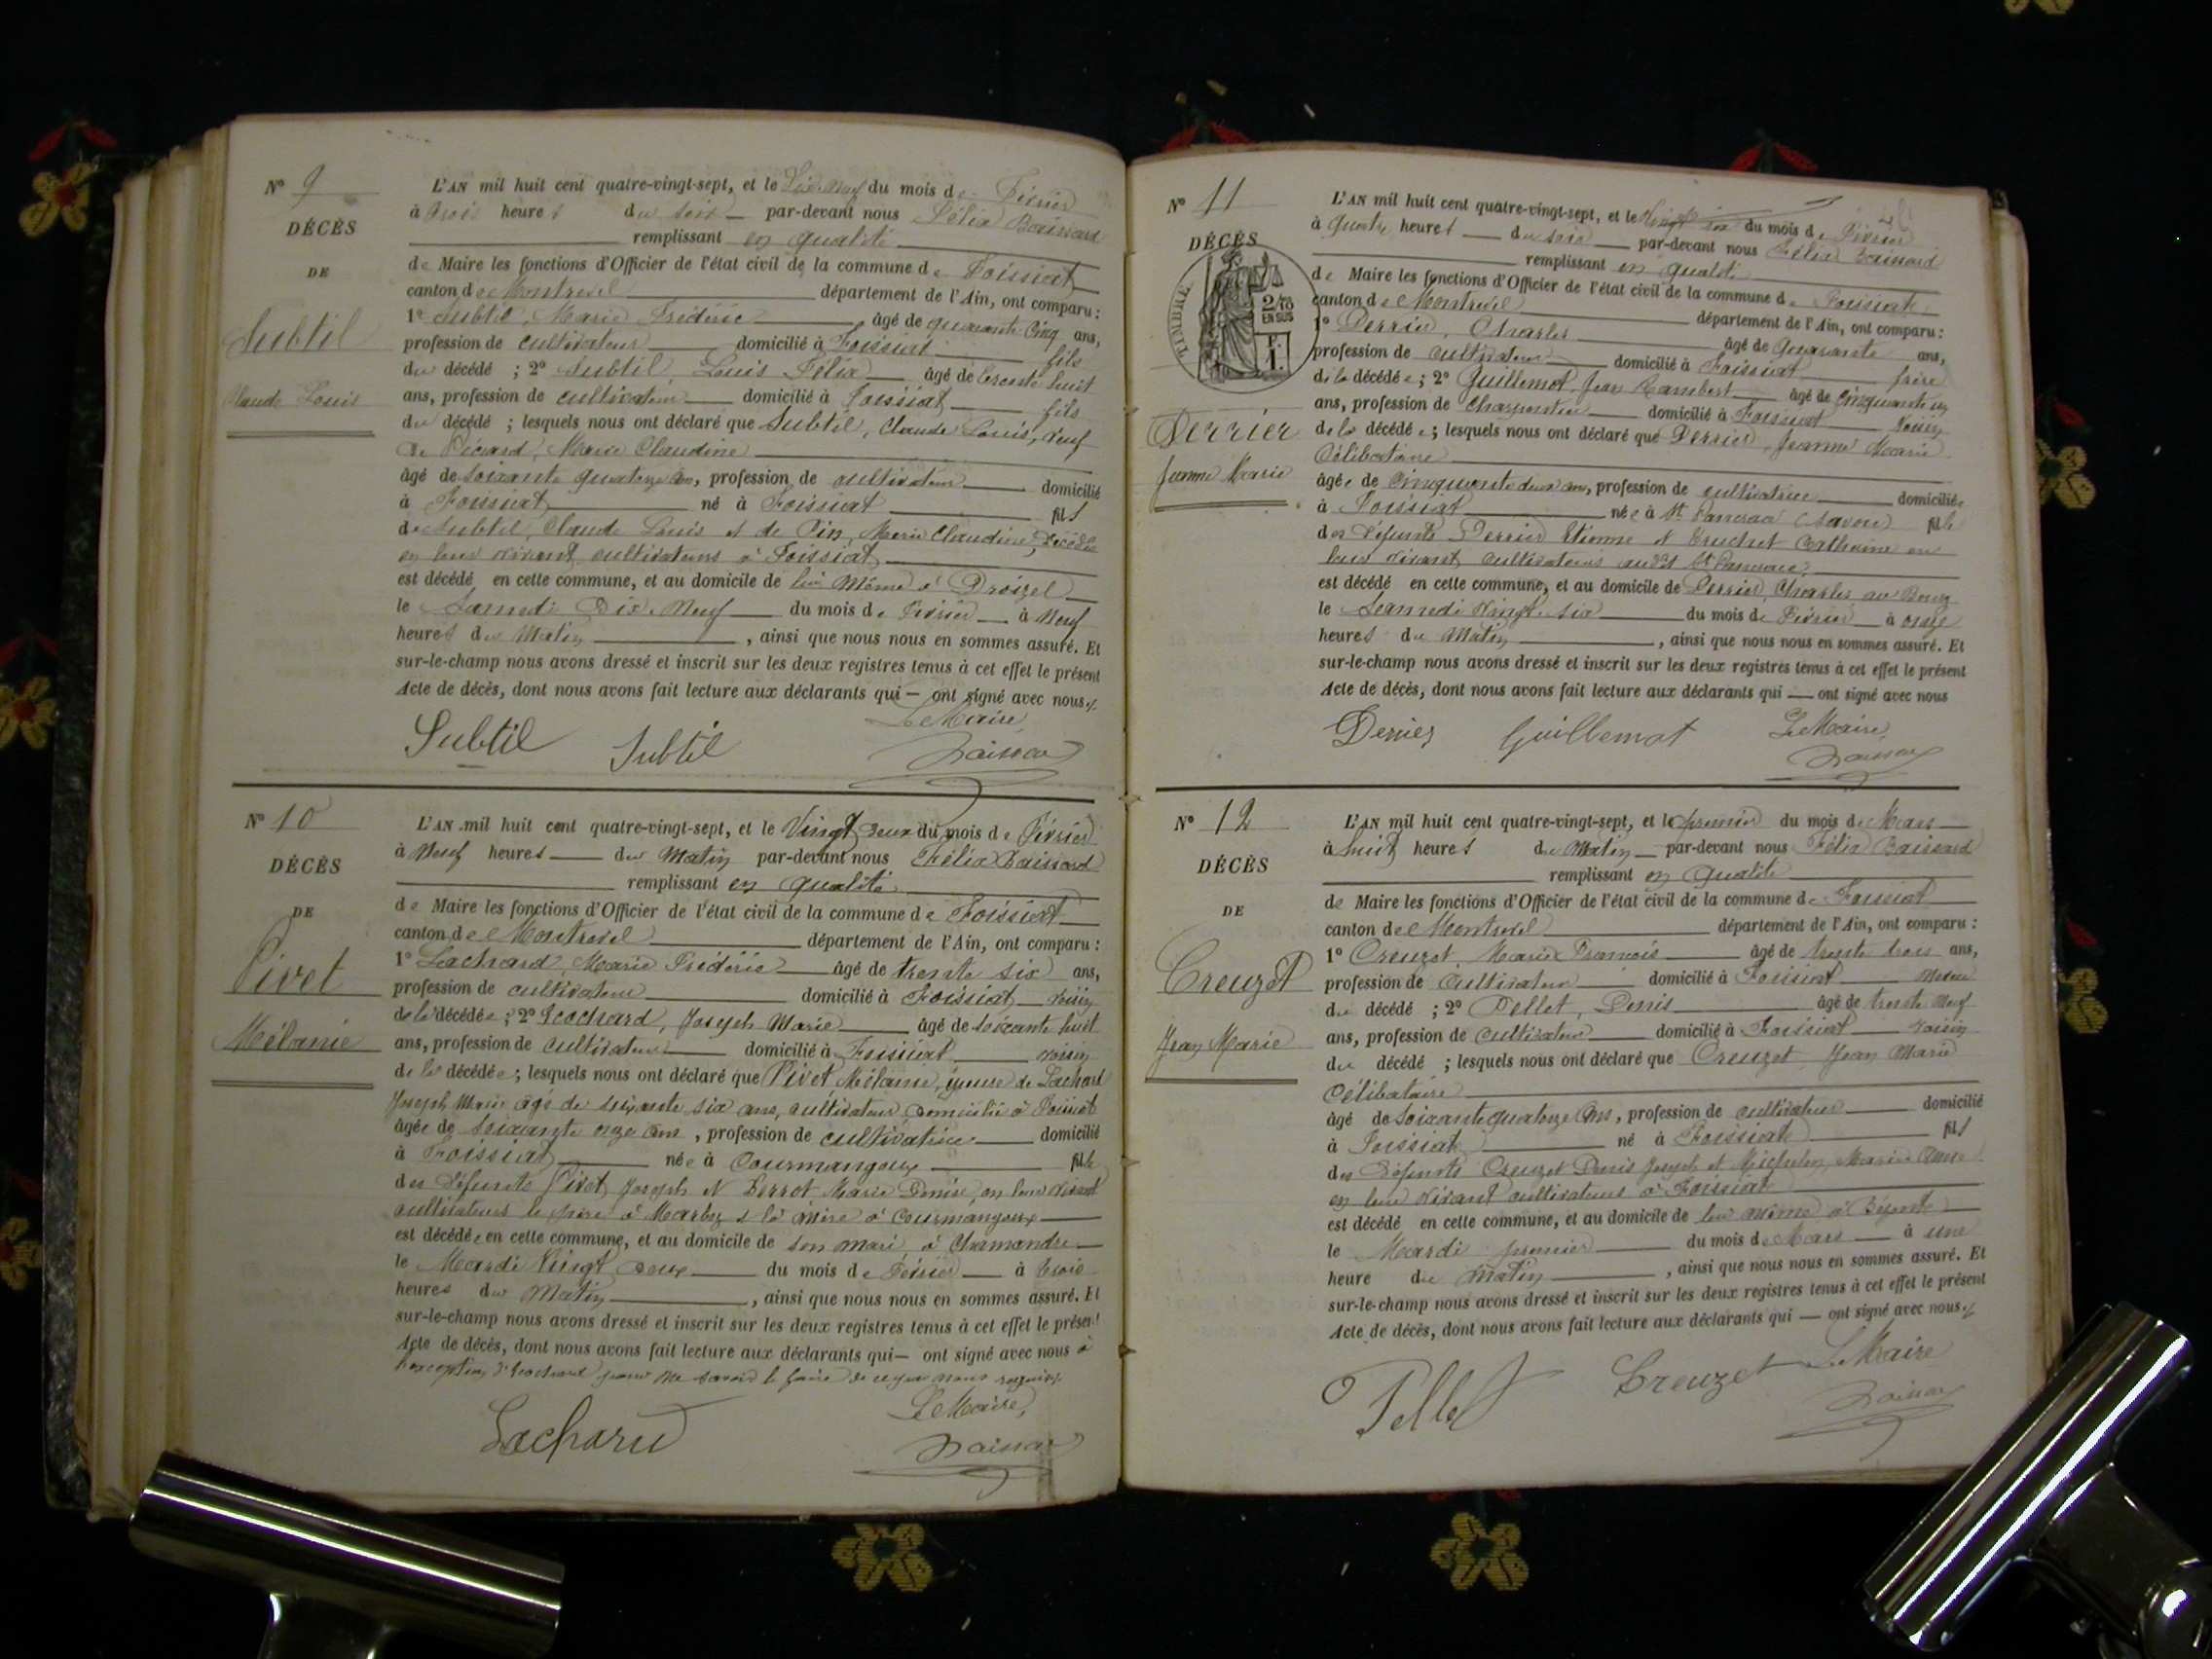 N° 9
DÉCÈS
DE
Subtil
Claude Louis
L'AN mil huit cent quatre-vingt-sept, et le Dix-Neuf du mois de Février
à trois heures du soir par-devant nous Félix Baissard
remplissant en qualité
de Maire les fonctions d'Officier de l'état civil de la commune de Foissiat
canton de Montrevel département de l'Ain, ont comparu :
1° Subtil, Marie Frédéric âgé de quarante Cinq ans,
profession de cultivateur domicilié à Foissiat fils
du décédé ; 2° Subtil, Louis Félix âgé de trente huit
ans, profession de cultivateur domicilié à Foissiat fils
du décédé ; lesquels nous ont déclaré que Subtil, Claude Louis, veuf
de Marie Claudine
âgé de Soixante quatorze ans, profession de cultivateur domicilié
à Foissiat né à Foissiat fils
de Subtil, Claude Louis et de Pin, Marie Claudine, décédés
en leur vivant cultivateurs à Foissiat
est décédé en cette commune, et au domicile de lui Même à Droizel
le Samedi Dix-Neuf du mois de Février à Neuf
heures du Matin , ainsi que nous nous en sommes assuré. Et
sur-le-champ nous avons dressé et inscrit sur les deux registres tenus à cet effet le présent
Acte de décès, dont nous avons fait lecture aux déclarants qui — ont signé avec nous.
Le Maire
Subtil Subtil Baissard
N° 10
DÉCÈS
DE
Pivet
Mélanie
L'AN mil huit cent quatre-vingt-sept, et le Vingt deux du mois de Février
à Neuf heures du Matin par-devant nous Félix Baissard
remplissant en qualité
de Maire les fonctions d'Officier de l'état civil de la commune de Foissiat
canton de Montrevel département de l'Ain, ont comparu :
1° Lachard, Marie Frédéric âgé de trente six ans,
profession de cultivateur domicilié à Foissiat voisin
de la décédée ; 2° Joseph Marie âgé de soixante huit
ans, profession de cultivateur domicilié à Foissiat voisin
de la décédée ; lesquels nous ont déclaré que Pivet Mélanie, épouse de Lachard
Joseph Marie âgé de soixante six ans, cultivateur domicilié à Foissiat
âgée de Soixante onze ans, profession de cultivatrice domicilié
à Foissiat née à Courmangoux fille
des défunts Pivet, Joseph et Marie Denise, en leur vivant
cultivateurs le père à et la mère à Courmangoux
est décédée en cette commune, et au domicile de son mari, à Chamandre
le Mardi Vingt deux du mois de Février à trois
heures du Matin , ainsi que nous nous en sommes assuré. Et
sur-le-champ nous avons dressé et inscrit sur les deux registres tenus à cet effet le présent
Acte de décès, dont nous avons fait lecture aux déclarants qui — ont signé avec nous à
l'exception pour ne savoir le faire de ce par nous requis.
Le Maire,
Lachard Baissard
N° 11
DÉCÈS
TIMBRE
2/10
EN SUS
F.
1.
Derrier
Jeanne Marie
L'AN mil huit cent quatre-vingt-sept, et le Vingt six du mois de Février
à quatre heures du soir par-devant nous Félix Baissard
remplissant en qualité
de Maire les fonctions d'Officier de l'état civil de la commune de Foissiat
canton de Montrevel département de l'Ain, ont comparu :
1° Derrier, Charles âgé de quarante ans,
profession de cultivateur domicilié à Foissiat frère
de la décédée ; 2° Guillemot, Jean Rambert âgé de cinquante un
ans, profession de Charpentier domicilié à Foissiat voisin
de la décédée ; lesquels nous ont déclaré que Derrier, Jeanne Marie
Célibataire
âgée de Cinquante deux ans, profession de cultivatrice domiciliée
à Foissiat née à St Pancrace (Savoie) fille
des défunts Derrier Etienne et Truchet Catherine en
leur vivant cultivateurs audit St Pancrace
est décédé en cette commune, et au domicile de Derrier, Charles au Bourg
le Samedi Vingt-six du mois de Février à onze
heures du Matin , ainsi que nous nous en sommes assuré. Et
sur-le-champ nous avons dressé et inscrit sur les deux registres tenus à cet effet le présent
Acte de décès, dont nous avons fait lecture aux déclarants qui — ont signé avec nous
Derrier Guillemot Le Maire,
Baissard
N° 12
DÉCÈS
DE
Creuzet
Jean Marie
L'AN mil huit cent quatre-vingt-sept, et le premier du mois de Mars
à huit heures du Matin par-devant nous Félix Baissard
remplissant en qualité
de Maire les fonctions d'Officier de l'état civil de la commune de Foissiat
canton de Montrevel département de l'Ain, ont comparu :
1° Creuzet, Marie François âgé de trente trois ans,
profession de Cultivateur domicilié à Foissiat neveu
du décédé ; 2° Pellet, Denis âgé de trente Neuf
ans, profession de cultivateur domicilié à Foissiat voisin
du décédé ; lesquels nous ont déclaré que Creuzet Jean Marie
Célibataire
âgé de Soixante quatorze Ans, profession de cultivateur domicilié
à Foissiat né à Foissiat fils
des défunts Creuzet Denis Joseph et Marie Anne
en leur vivant cultivateurs à Foissiat
est décédé en cette commune, et au domicile de lui même à
le Mardi premier du mois de Mars à une
heure du Matin , ainsi que nous nous en sommes assuré. Et
sur-le-champ nous avons dressé et inscrit sur les deux registres tenus à cet effet le présent
Acte de décès, dont nous avons fait lecture aux déclarants qui — ont signé avec nous.
Pellet Creuzet Le Maire
Baissard